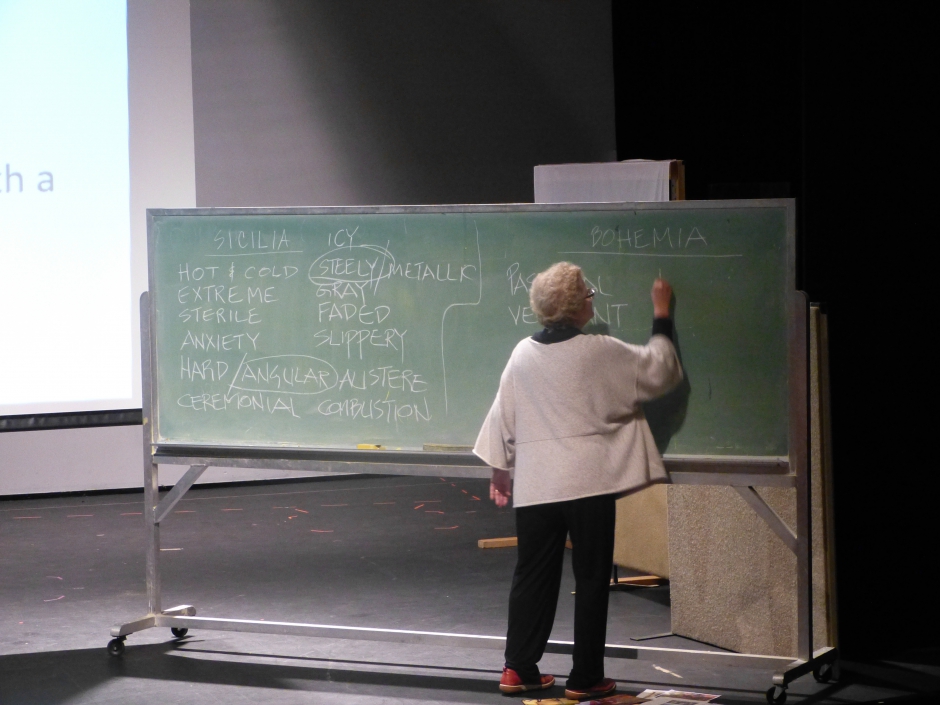 th a
SICILIA ICY
HOT & COLD STEELY/METALLIC
EXTREME GRAY
STERILE FADED
ANXIETY SLIPPERY
HARD/ANGULAR AUSTERE
CEREMONIAL COMBUSTION
BOHEMIA